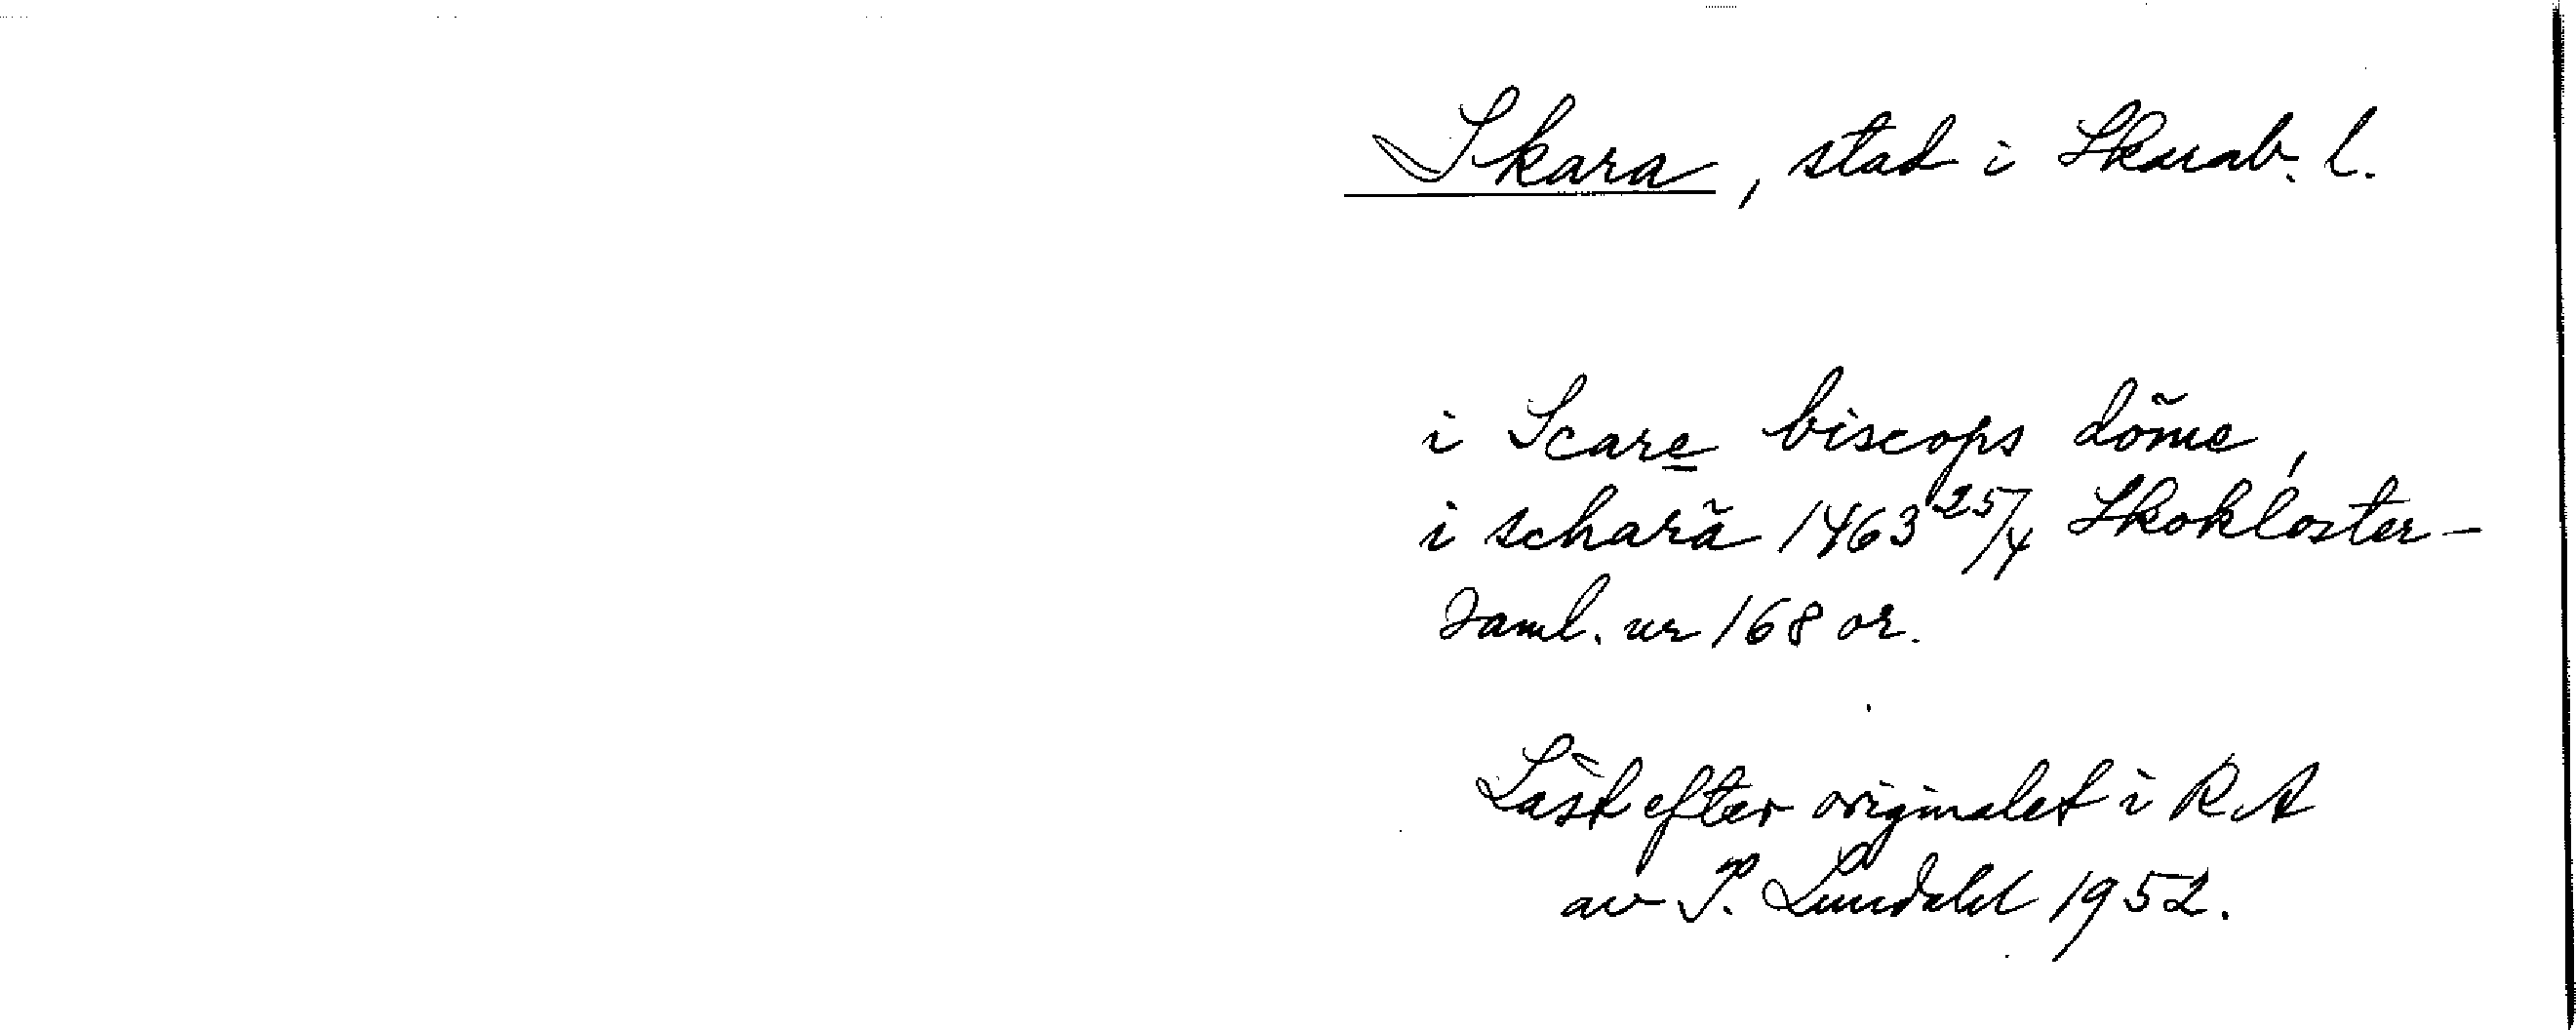 Skara, stad i Skarab. l.
i Scare biscops dõme,
i scharã 1463 25/4 Skokloster-
saml. nr 168 or.
Läst efter originalet i RA
av P. Lindahl 1952.